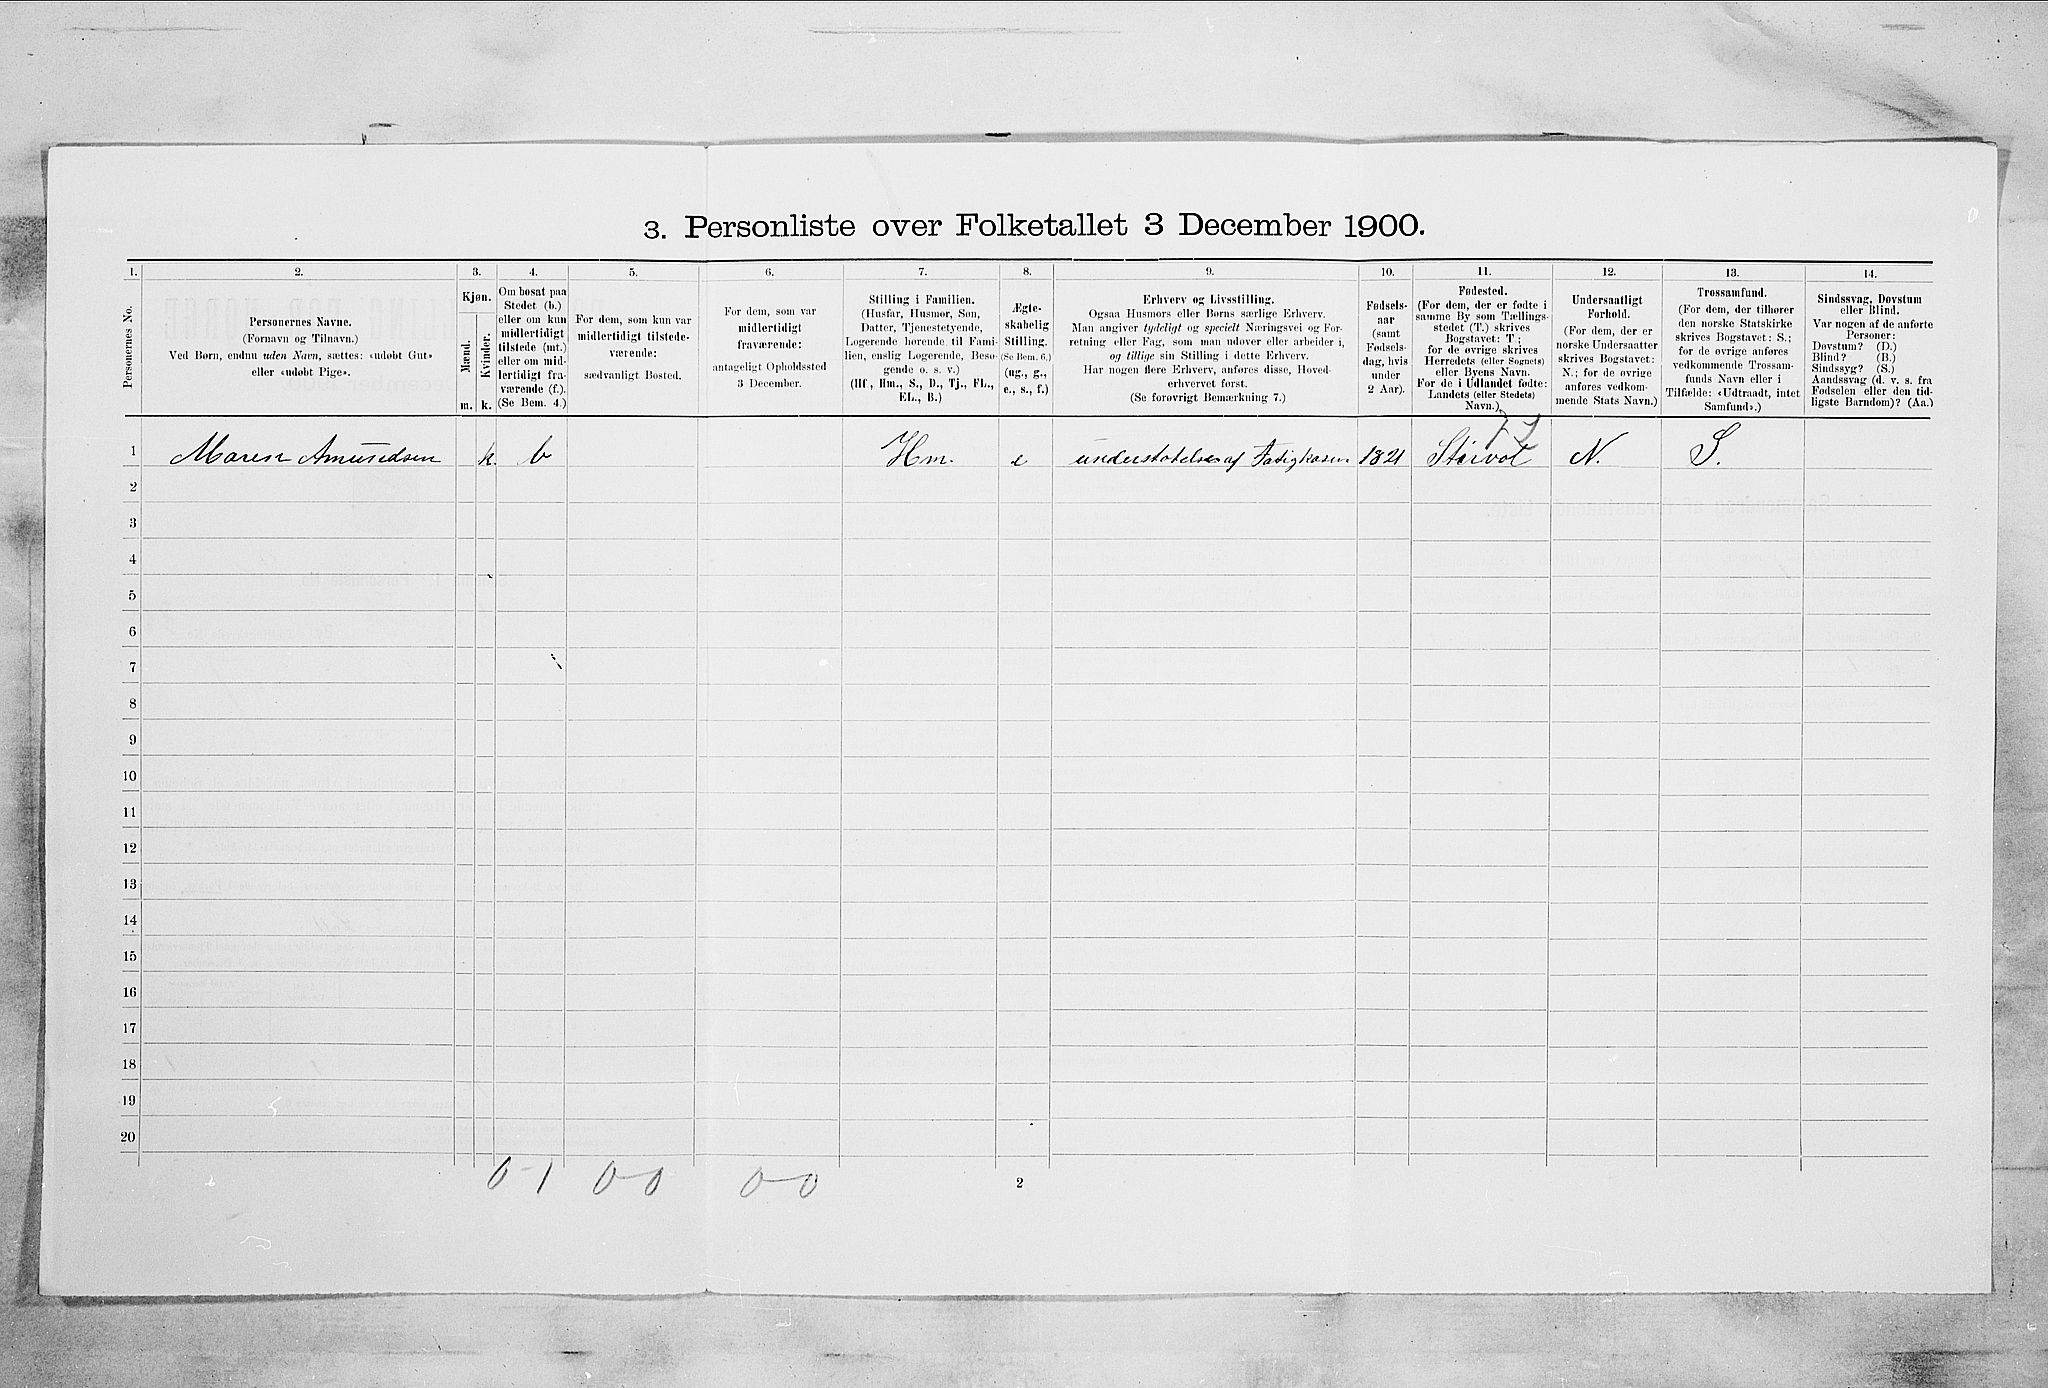 3. Personliste over Folketallet 3 December 1900.
1. 2. 3. 4. 5. 6. 7. 8. 9. 10. 11. 12. 13. 14.
Personernes No.
Personernes Navne.
(Fornavn og Tilnavn.)
Ved Børn, endnu uden Navn, sættes: «udøbt Gut»
eller «udøbt Pige».
Kjøn.
Mænd.
Kvinder.
m. k.
Om bosat paa
Stedet (b.)
eller om kun
midlertidigt
tilstede (mt.)
eller om mid-
lertidigt fra-
værende (f.).
(Se Bem. 4.)
For dem, som kun var
midlertidigt tilstede-
værende:
sædvanligt Bosted.
For dem, som var
midlertidigt
fraværende:
antageligt Opholdssted
3 December.
Stilling i Familien.
(Husfar, Husmor, Søn,
Datter, Tjenestetyende,
Logerende hørende til Fami-
lien, enslig Logerende, Besø-
gende o. s. v.)
(Hf., Hm., S., D., Tj., FL.,
EL., B.)
Ægte-
skabelig
Stilling.
(Se Bem. 6.)
(ug., g.,
e., s., f.)
Erhverv og Livsstilling.
Ogsaa Husmors eller Børns særlige Erhverv.
Man angiver tydeligt og specielt Næringsvei og For-
retning eller Fag, som man udøver eller arbeider i,
og tillige sin Stilling i dette Erhverv.
Har nogen flere Erhverv, anføres disse, Hoved-
erhvervet først.
(Se forøvrigt Bemærkning 7.)
Fødsels-
aar
(samt
Fødsels-
dag, hvis
under
2 Aar).
Fødested.
(For dem, der er fødte i
samme By som Tællings-
stedet (T.) skrives
Bogstavet: T.;
for de øvrige skrives
Herredets (eller Sognets)
eller Byens Navn.
For de i Udlandet fødte:
Landets (eller Stedets)
Navn.)
Undersaatligt
Forhold.
(For dem, der er
norske Undersaatter
skrives Bogstavet:
N.; for de øvrige
anføres vedkom-
mende Stats Navn.)
Trossamfund.
(For dem, der tilhører
den norske Statskirke
skrives Bogstavet: S.;
for de øvrige anføres
vedkommende Trossam-
funds Navn eller i
Tilfælde: «Udtraadt, intet
Samfund».)
Sindssvag, Døvstum
eller Blind.
Var nogen af de anførte
Personer:
Døvstum? (D.)
Blind? (B.)
Sindssyg? (S.)
Aandssvag (d. v. s. fra
Fødselen eller den tid-
ligste Barndom)? (Aa.)
1 Maren Amundsen k. b Hm. e understøtelse af Fatigkasen 1821 N. S.
2
3
4
5
6
7
8
9
10
11
12
13
14
15
16
17
18
19
20
0-1 0-0 0-0
2